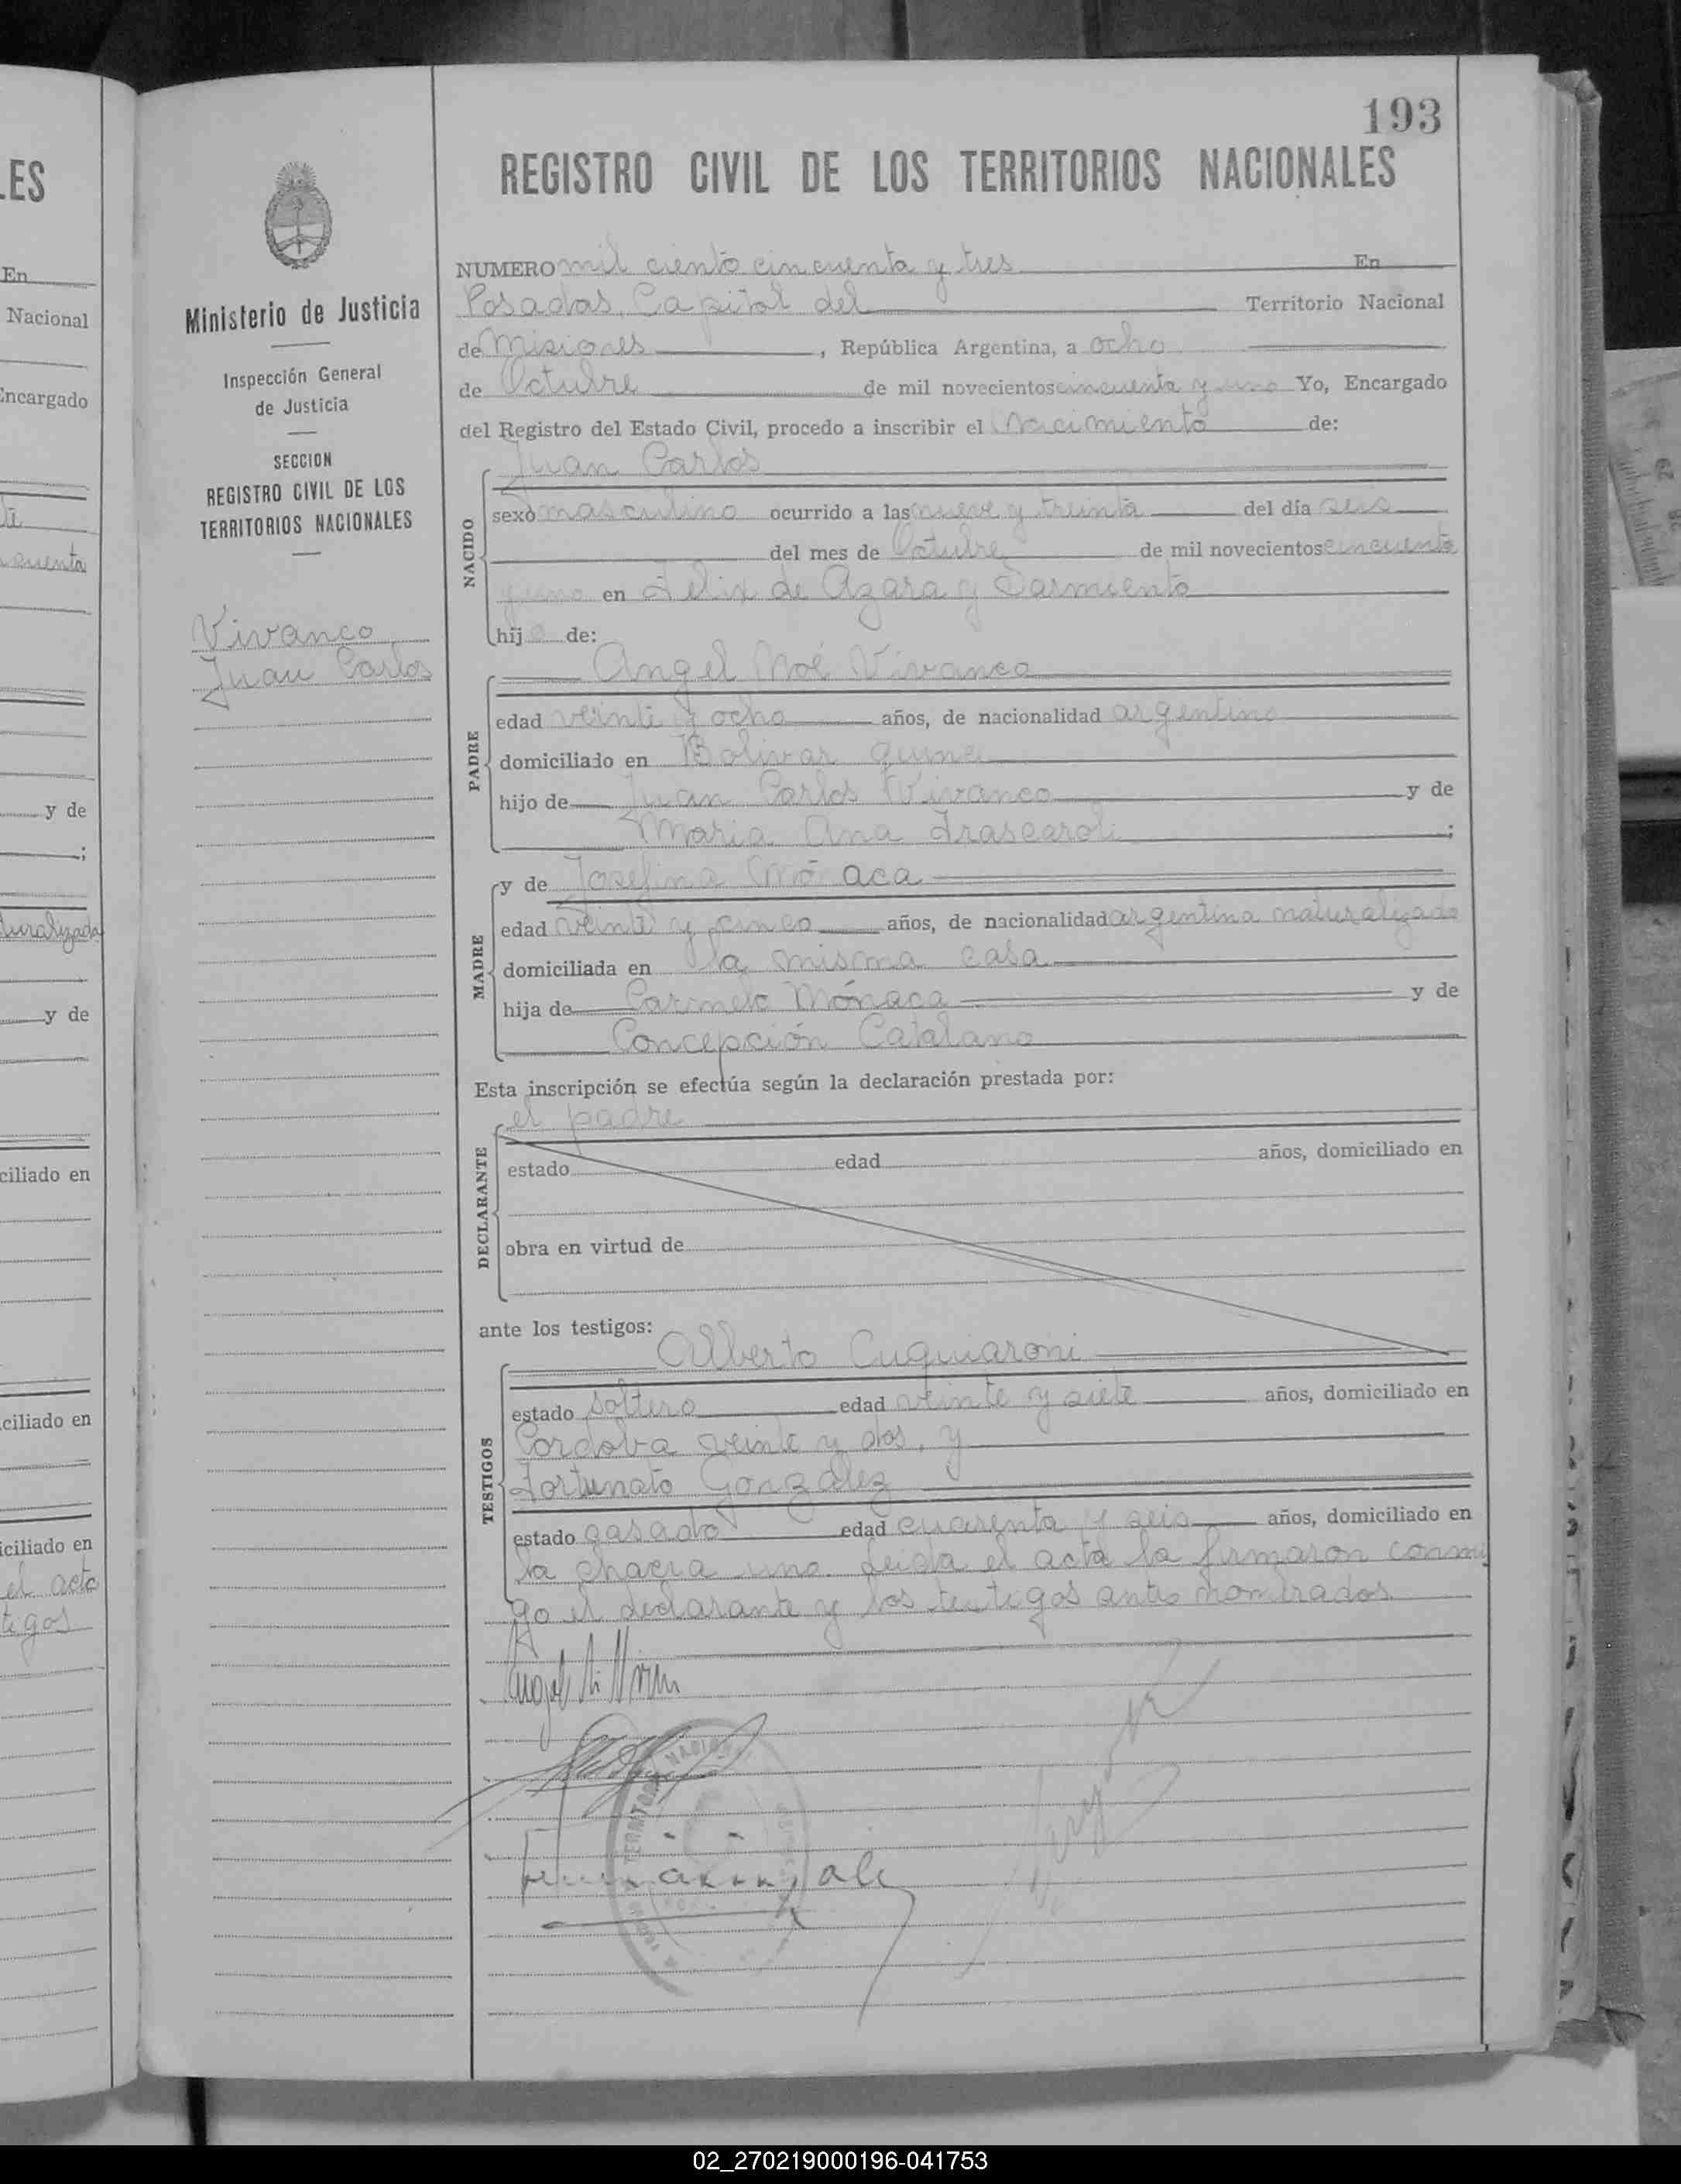 LES
En
Nacional
Encargado
cuenta
y de
;
turalizada
y de
ciliado en
ciliado en
iciliado en
el acta
tigos
193
REGISTRO CIVIL DE LOS TERRITORIOS NACIONALES
Ministerio de Justicia
Inspección General
de Justicia
SECCION
REGISTRO CIVIL DE LOS
TERRITORIOS NACIONALES
Vivanco
Juan Carlos
NUMERO mil ciento cincuenta y tres En
Posadas, Capital del Territorio Nacional
de Misiones, República Argentina, a ocho
de Octubre de mil novecientos cincuenta y uno Yo, Encargado
del Registro del Estado Civil, procedo a inscribir el Nacimiento de:
NACIDO
Juan Carlos
sexo masculino ocurrido a las nueve y treinta del día seis
del mes de Octubre de mil novecientos cincuenta
y uno en Felix de Azara y Sarmiento
hijo de:
PADRE
Angel Noé Vivanco
edad veinte y ocho años, de nacionalidad argentino
domiciliado en Bolivar
hijo de Juan Carlos Vivanco y de
Maria Ana Frascaroli;
MADRE
y de Josefina Mónaca
edad veinte y cinco años, de nacionalidad argentina naturalizada
domiciliada en la misma casa
hija de Carmelo Mónaca y de
Concepción Catalano
Esta inscripción se efectúa según la declaración prestada por:
DECLARANTE
el padre
estado edad años, domiciliado en
obra en virtud de
ante los testigos:
TESTIGOS
Alberto Cuquiaroni
estado soltero edad veinte y siete años, domiciliado en
Cordoba veinte y dos, y
Fortunato Gonzalez
estado casado edad cuarenta y seis años, domiciliado en
la chacra uno. Leida el acta la firmaron conmi
go el declarante y los testigos antes nombrados.
02_270219000196-041753